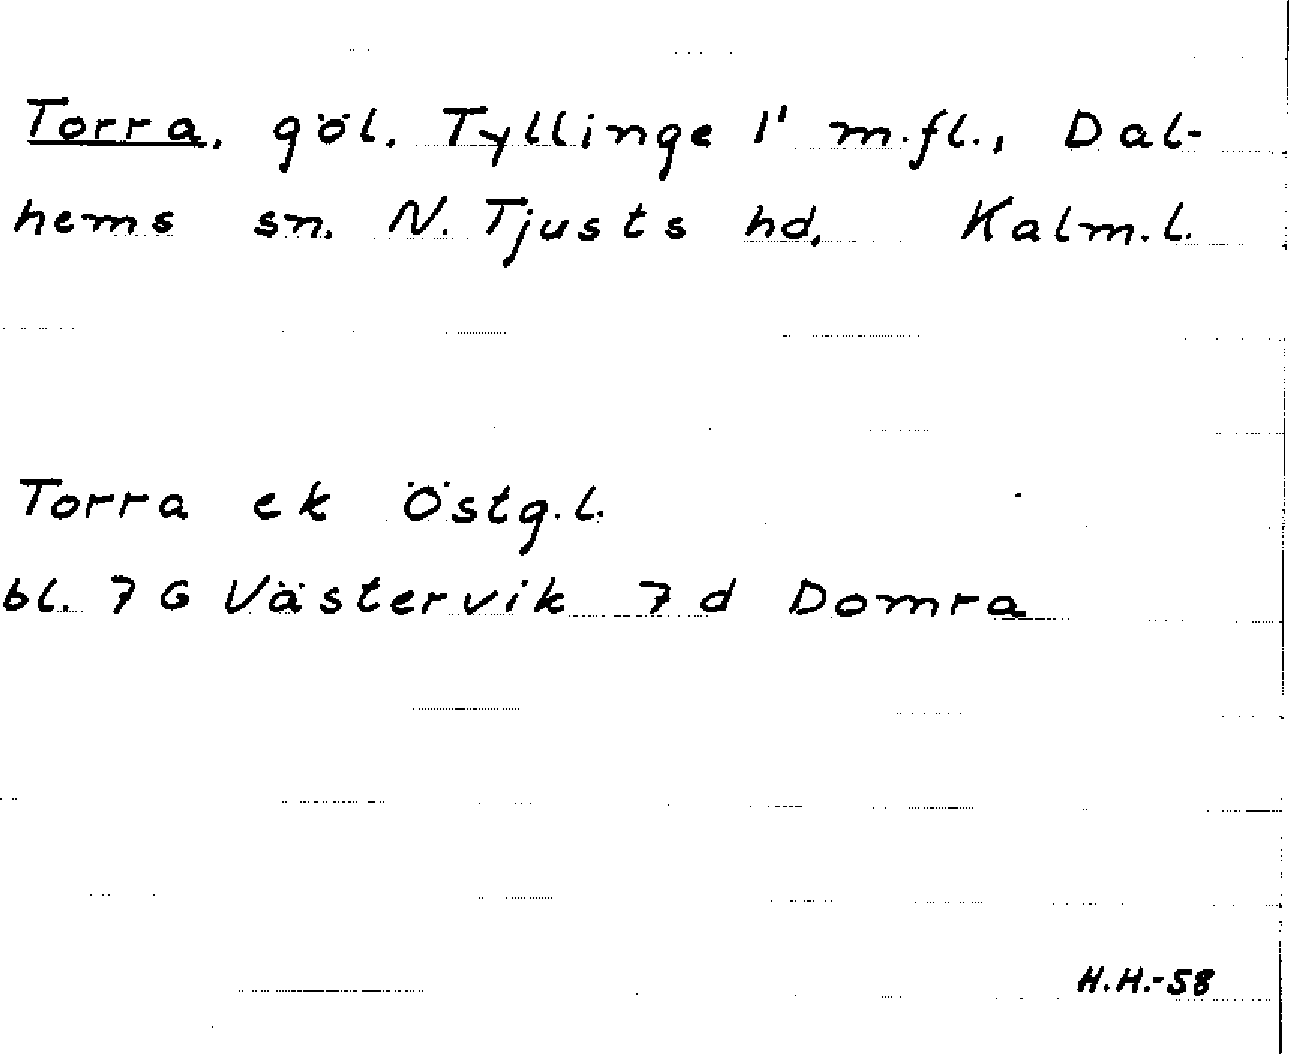 Torra, göl. Tyllinge 1' m.fl., Dal-
hems sn. N. Tjusts hd, Kalm.l.
Torra ek Östg.l.
bl. 7 G Västervik 7 d Domra
H.H.-58